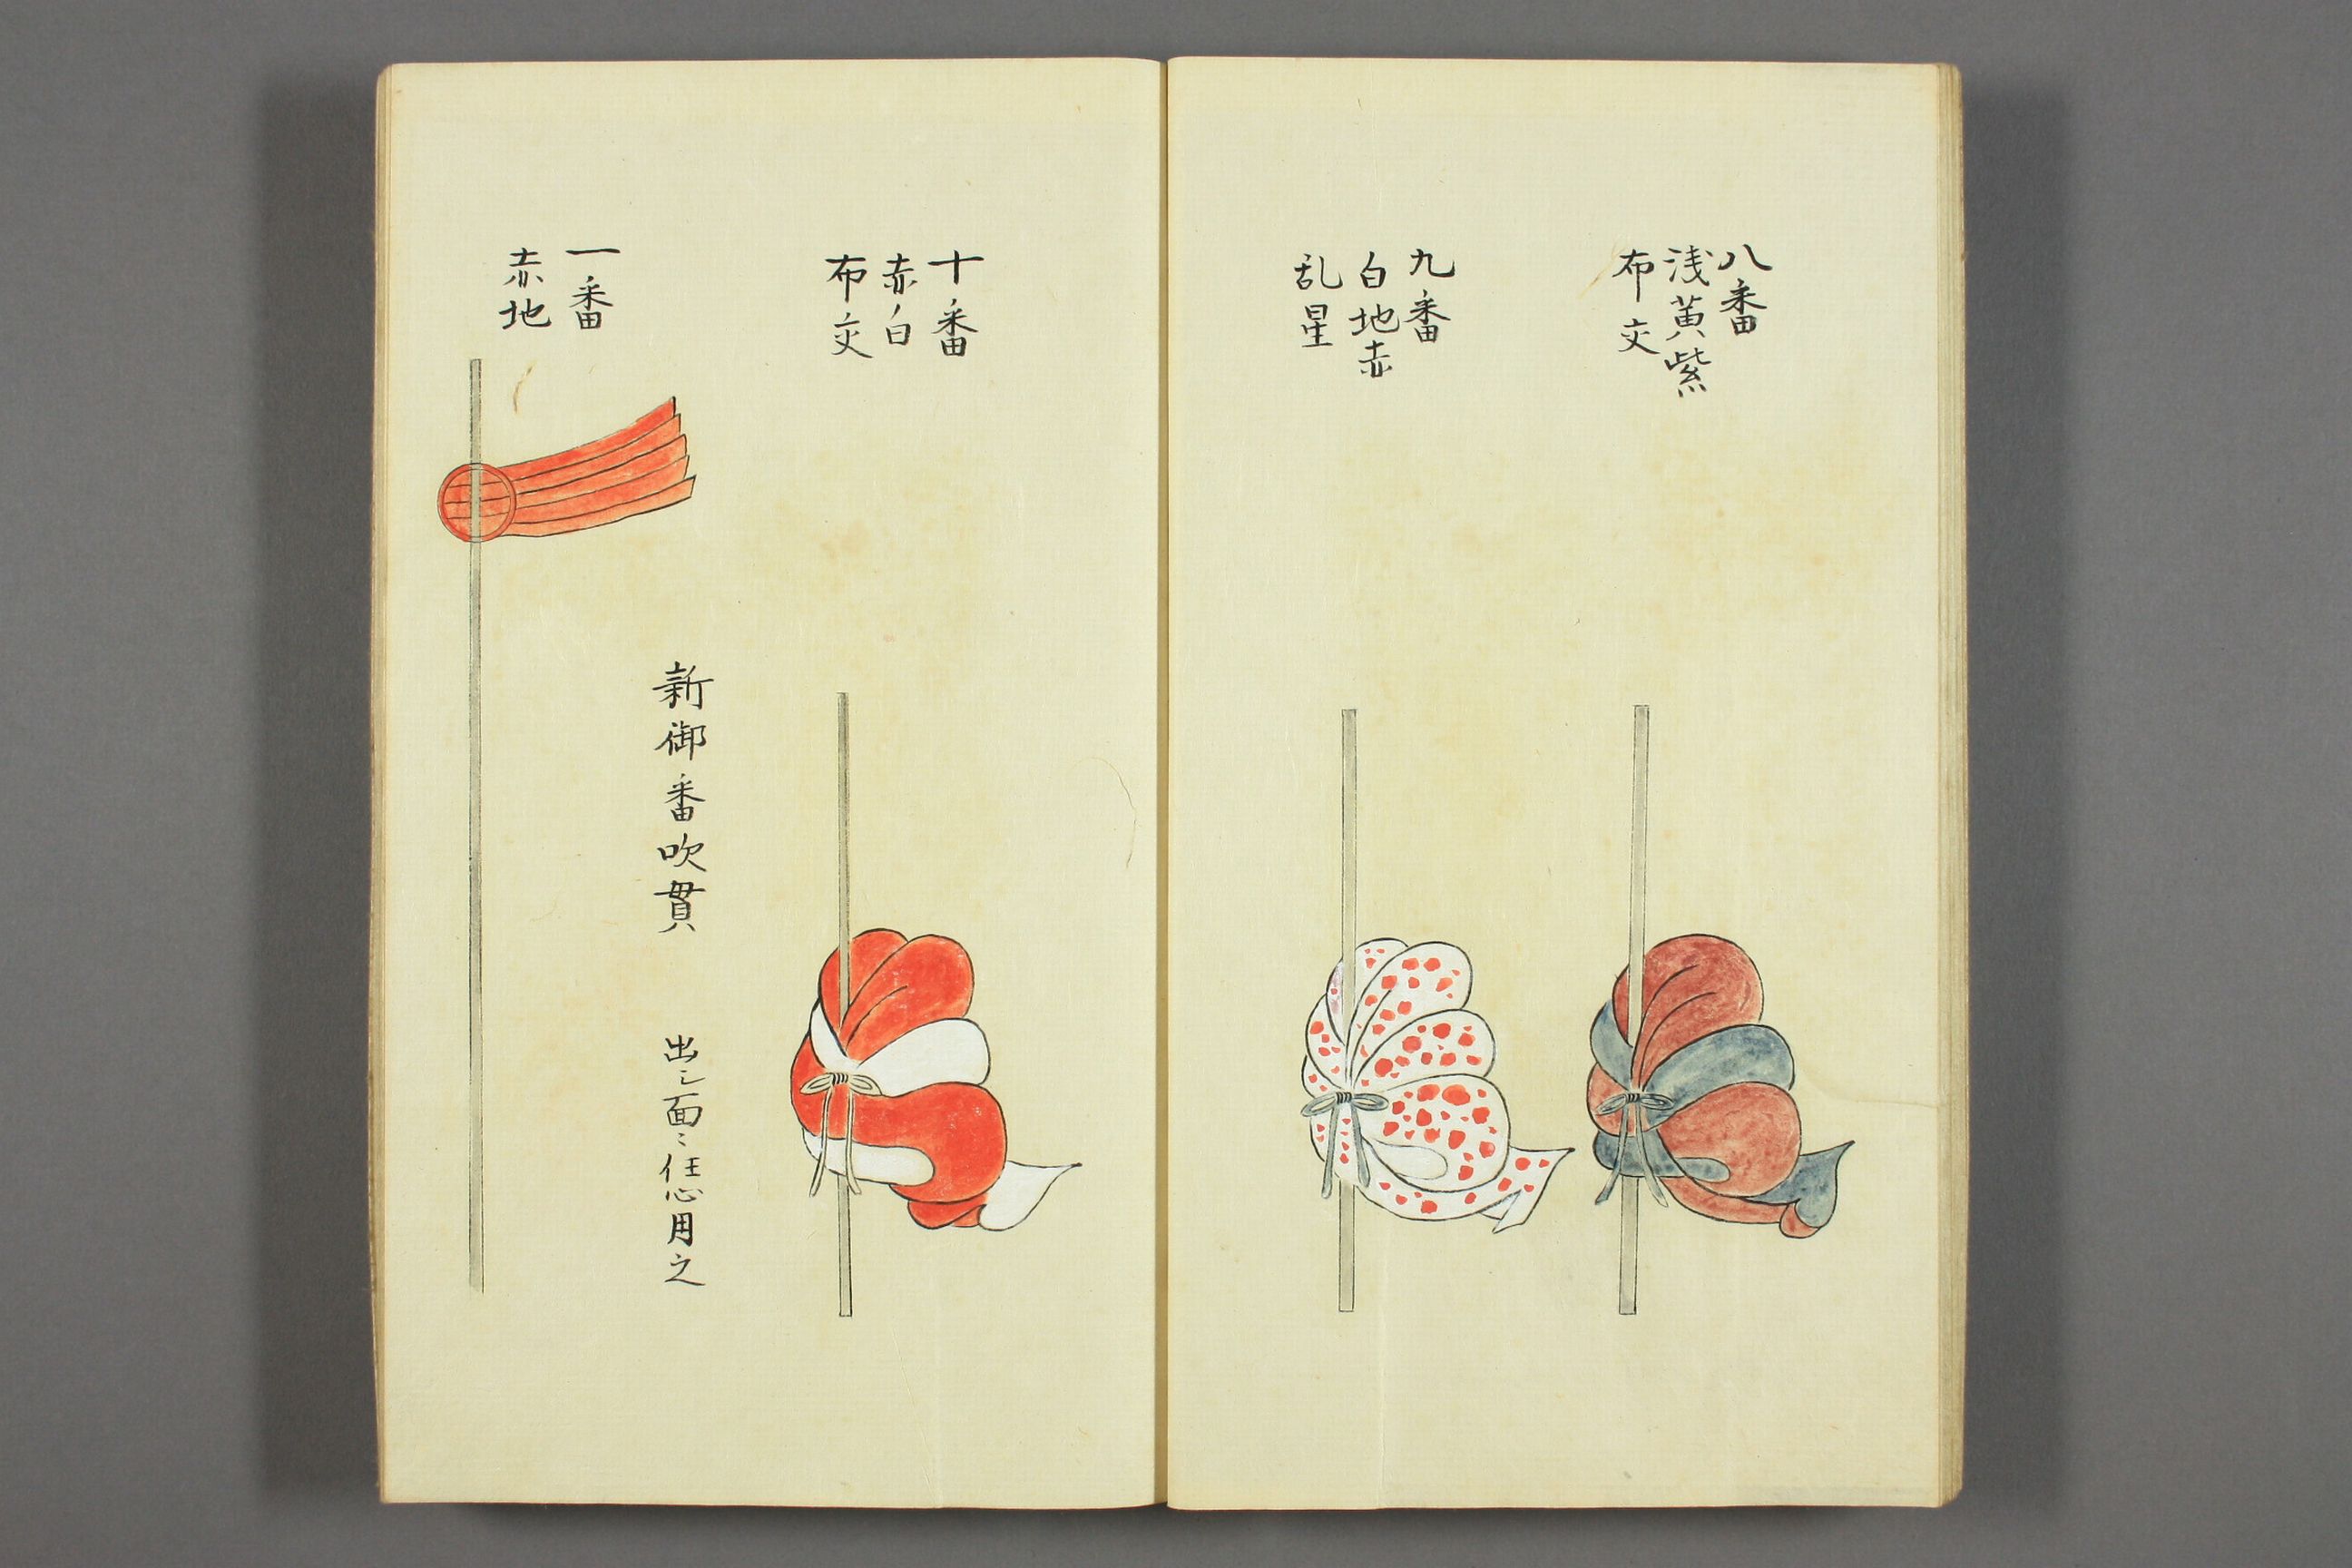 八番
浅黄紫
布交
九番
白地赤
乱星
十番
赤白
布交
新御番吹貫
出シ面々任心用之
一番
赤地